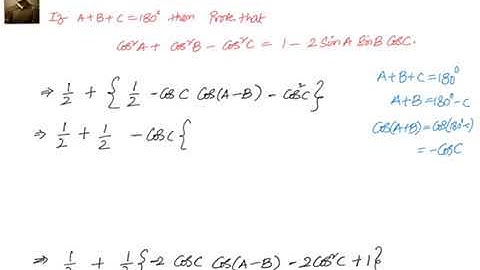 If A+B+C=180° then Prove that
cos²A + cos²B − cos²C = 1 − 2 sinA sinB cosC.
⇒ 1/2 + { 1/2 − cosC cos(A−B) − cos²C }
A+B+C=180°
A+B=180°−C
cos(A+B)=cos(180°−C)
= −cosC
⇒ 1/2 + 1/2 − cosC {
⇒ 1/2 + 1/2 { −2 cosC cos(A−B) − 2cos²C + 1 }